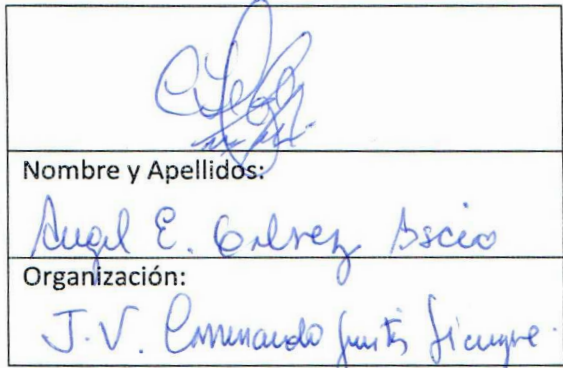 Nombre y Apellidos:
Angel E. Galvez
Organización:
J.V. Caminando Juntos Siempre.